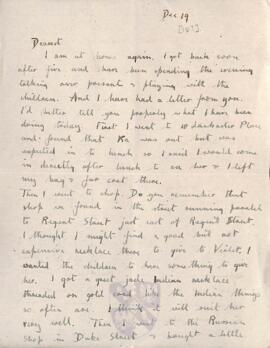 Dec 19
[1923]
Dearest
I am at home again. I got back soon
after five and have been spending the evening
talking over parcels & playing with the
children. And I have had a letter from you.
I'd better tell you properly what I have been
doing today. First I went to Lancaster Place
and found that Ka was out but was
expected in to lunch so I said I would come
in directly after lunch to see her & I left
my bag & fur coat there.
Then I went to shop. Do you remember that
shop we found in the street running parallel
to Regent Street just east of Regent Street.
I thought I might find a good but not
expensive necklace there to give to Violet. I
wanted the children to have something to give
her. I got a quiet jade Indian necklace
threaded on gold cord like the Indian things
so often are. I think it will suit her
very well. Then to the Russian
shop in Duke Street & bought a little